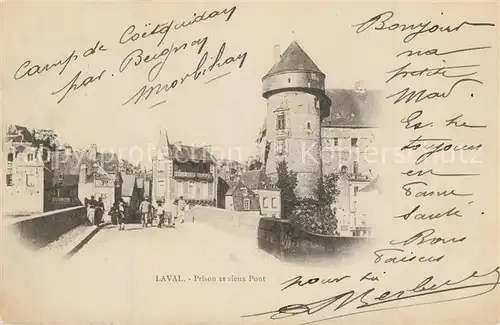 Camp de Coëtquidan
par Beignon
Morbihan
Bonjour
ma
petite
Mad.
Es tu
toujours
en
bonne
santé
Bons
baisers
pour la
LAVAL. - Prison et vieux Pont